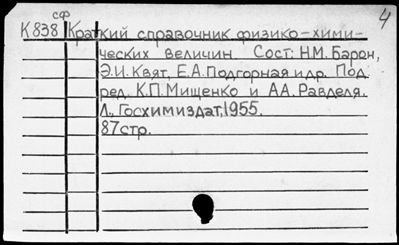 сф
4
К838 Краткий справочник физико-хими-
ческих величин Сост: Н.М. Барон,
Э.И. Квят, Е.А. Подгорная и др. Под.
ред. К.П. Мищенко и А.А. Равделя.
Л., Госхимиздат, 1955.
87 стр.